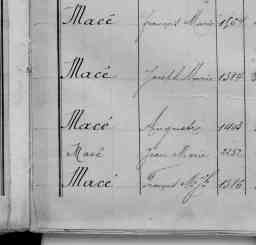 Macé François Marie
Macé Joseph Marie 1384
Macé Auguste 1403
Macé Jean Marie 2252
Macé François